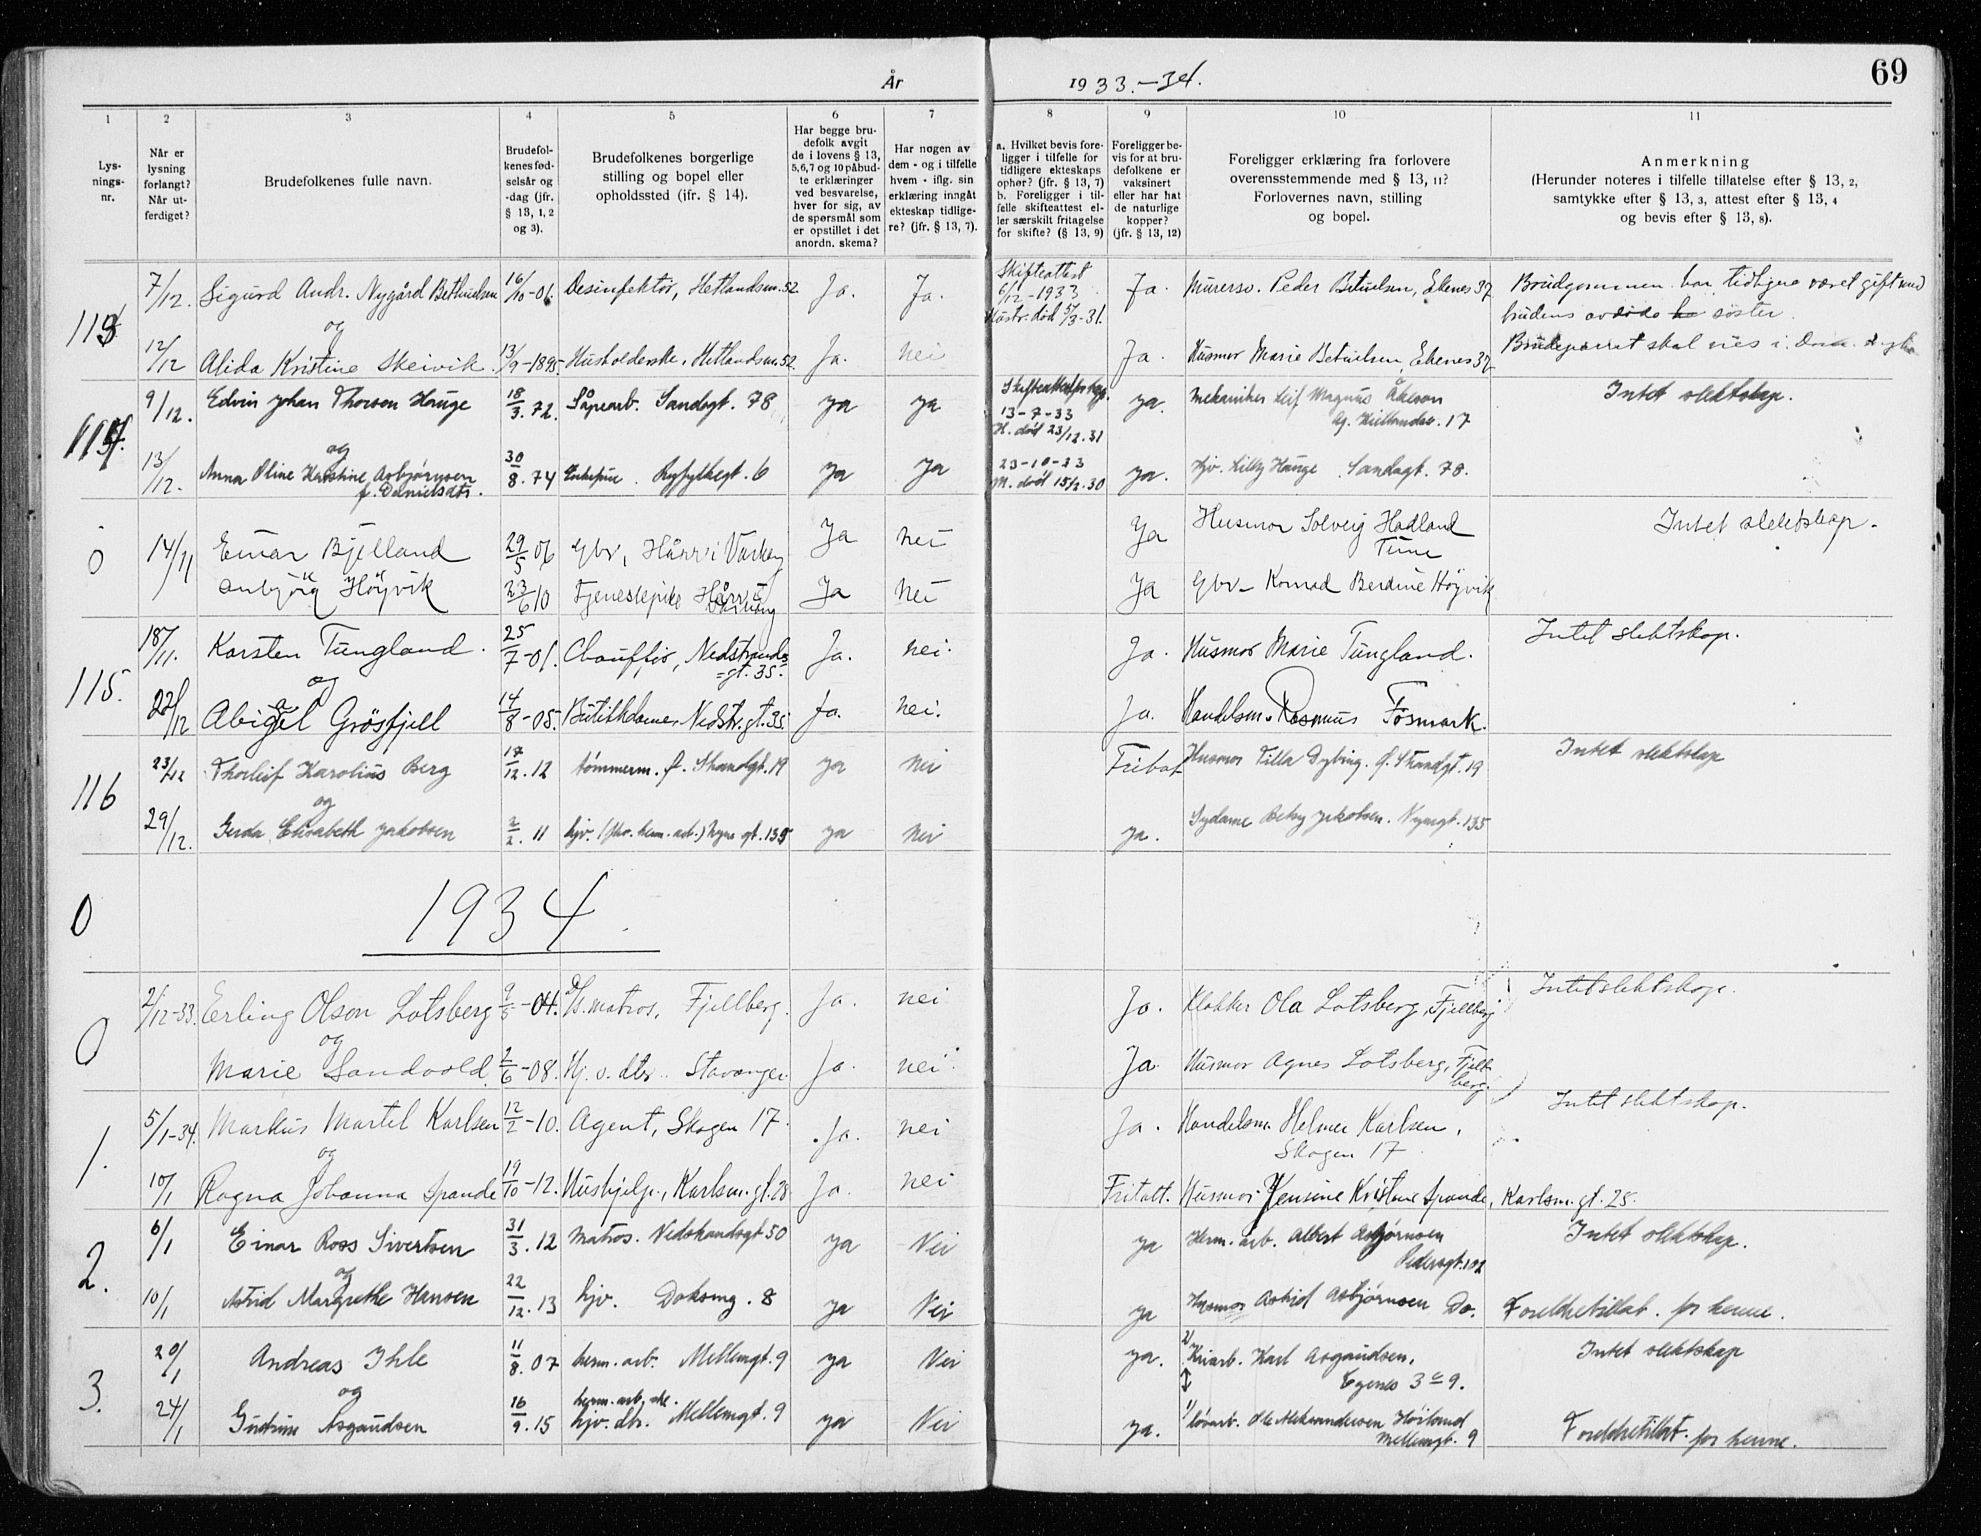 69
År 1933.-34.
1 2 3 4 5 6 7 8 9 10 11
Lys-
nings-
nr.
Når er
lysning
forlangt?
Når ut-
ferdiget?
Brudefolkenes fulle navn.
Brudefol-
kenes fød-
selsår og
-dag (jfr.
§ 13, 1, 2
og 3).
Brudefolkenes borgerlige
stilling og bopel eller
opholdssted (ifr. § 14).
Har begge bru-
defolk avgit
de i lovens § 13,
5,6,7 og 10 påbud-
te erklæringer
ved besvarelse,
hver for sig, av
de spørsmål som
er opstillet i det
anordn. skema?
Har nogen av
dem - og i tilfelle
hvem - iflg. sin
erklæring inngåt
ekteskap tidlige-
re? (jfr. § 13, 7).
a. Hvilket bevis fore-
ligger i tilfelle for
tidligere ekteskaps
ophør? (jfr. § 13, 7)
b. Foreligger i til-
felle skifteattest el-
ler særskilt fritagelse
for skifte? (§ 13, 9)
Foreligger be-
vis for at bru-
defolkene er
vaksinert
eller har hat
de naturlige
kopper?
(jfr. § 13, 12)
Foreligger erklæring fra forlovere
overensstemmende med § 13, 11?
Forlovernes navn, stilling
og bopel.
Anmerkning
(Herunder noteres i tilfelle tillatelse efter § 13, 2,
samtykke efter § 13, 3, attest efter § 13, 4
og bevis efter § 13, 8).
113
7/12. Sigurd Andr. Nygård Bethuelsen 16/10-01. Desinfektør, Hetlandsm. 52. Ja. Ja. Skifteattest 6/12-1933 Hustr. død 5/3-31. Ja. Murersv. Peder Betuelsen, Ekenes 37 Brudgommen har tidligere været gift med
brudens avdøde søster.
og
12/12 Alida Kristine Skeivik. 13/9-1895. Husholderske, Hetlandsm. 52. Ja. nei Ja. Husmor Marie Betuelsen, Ekenes 37 Brudeparret skal vies i
114.
9/12. Edvin Johan Thorsen Hauge 18/3.72. Sågarb. Sandsgt. 78 ja ja 13-7-33 H. død 23/12.31 ja. Mekaniker Leif Magnus Åkeson Intet slektskap.
Ag. Kiellandsv. 17
og
13/12. Anna Oline Kirstine Asbjørnsen 30/8.74 Enkefrue. Ryfylkegt. 6 ja ja 23-10-23 M. død 15/2.30 ja. Hjv. Lilly Hauge Sandsgt. 78.
f. Danielsdtr.
0 14/11 Einar Bjelland 29/5 06 Gbr, Hårr i Varhaug Ja nei Ja Husmor Solveig Hadland Intet slektskap.
Time
Anbjörg Höyvik 23/6 10 Tjenestepike Hårr i Varhaug Ja nei Ja Gbr- Konrad Berdine Høyvik
115.
18/11. Karsten Tungland. 25/7-01. Chauffør, Nedstrands=gt. 35. Ja. nei. Ja. Husmor Marie Tungland. Intet slektskap.
og
22/12 Abigael Grösfjell 14/8-05. Butikkdame, Nedstr.gt. 35. Ja. nei. Ja. Handelsm. Rasmus Fosmark.
116
23/12 Thorleif Karolius Berg 17/12.12 tømmerm. ø. Strandgt. 19 ja Nei Fritat Husmor Tilla Dybing. Ø. Strandgt. 19 Intet slektskap
og
29/12. Gerda Elisabeth Jakobsen 2/2.11 hjv. (ktv. herm. arb.) Nyma gt. 135 ja Nei ja. Sydame Betsy Jakobsen. Nymgt. 135
0 1934.
0 2/12-33. Erling Olson Lotsberg 9/5-04. D/s. matros, Fjellberg. Ja. nei Ja. Klokker Ola Lotsberg, Fjellberg Intet slektskap.
og
Marie Sandvold. 2/6-08. Hj. v. dtr. Stavanger. Ja. nei. Ja. Husmor Agnes Lotsberg, Fjellberg.
1. 5/1-34. Markus Martel Karlsen 12/2-10. Agent, Skagen 17. Ja. nei Ja. Handelsm. Helmer Karlsen, Intet slektskap.
Skagen 17
og
10/1 Ragna Johanna Spande 19/10-12. Hushjelp., Karlsm.gt. 28 Ja. nei Fritatt. Husmor Jensine Kristine Spande, Karlsm.gt. 25.
2. 6/1 Einar Ross Sivertsen 31/3.12 Matros. Nedstrandsgt 50 ja Nei ja Herm. arb. Albert Asbjørnsen Intet slektskap.
Pedersgt. 102
og
10/1 Astrid Margrethe Hansen 22/12.13 hjv. Doksmg. 8 ja Nei ja Husmor Astrid Asbjørnsen Do. Foreldretillat. for henne.
3. 20/1 Andreas Ihle 11/8.07 herm. arb. Mellemgt. 9 ja Nei ja. 2) Kriarb. Karl Asgaudsen, Intet slektskap
Egenes 3 c 9.
og
24/1 Gudrun Asgaudsen 16/9.15 herm. arb.ske. hjv. dtr. Mellemgt. 9 ja Nei ja. 1) løsarb. Ole Aleksandersen Høiland Foreldretillat. for henne.
Mellemgt. 9